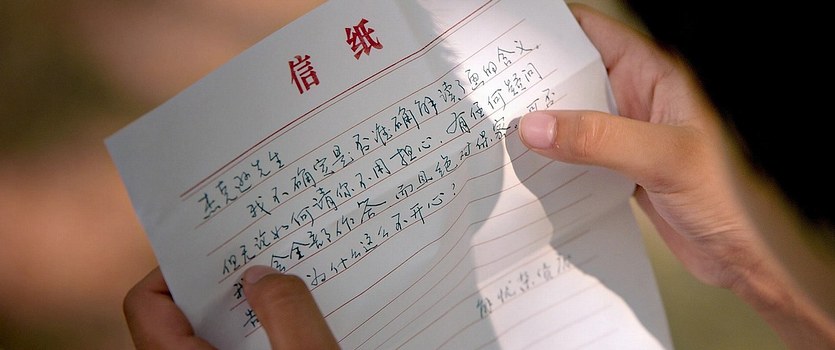 信纸
杰克逊先生
我不确定是否准确解读了画的含义。
但无论如何请你不用担心。有任何疑问
我会全部作答 而且绝对保密。可否
告 为什么这么不开心？
解忧杂货